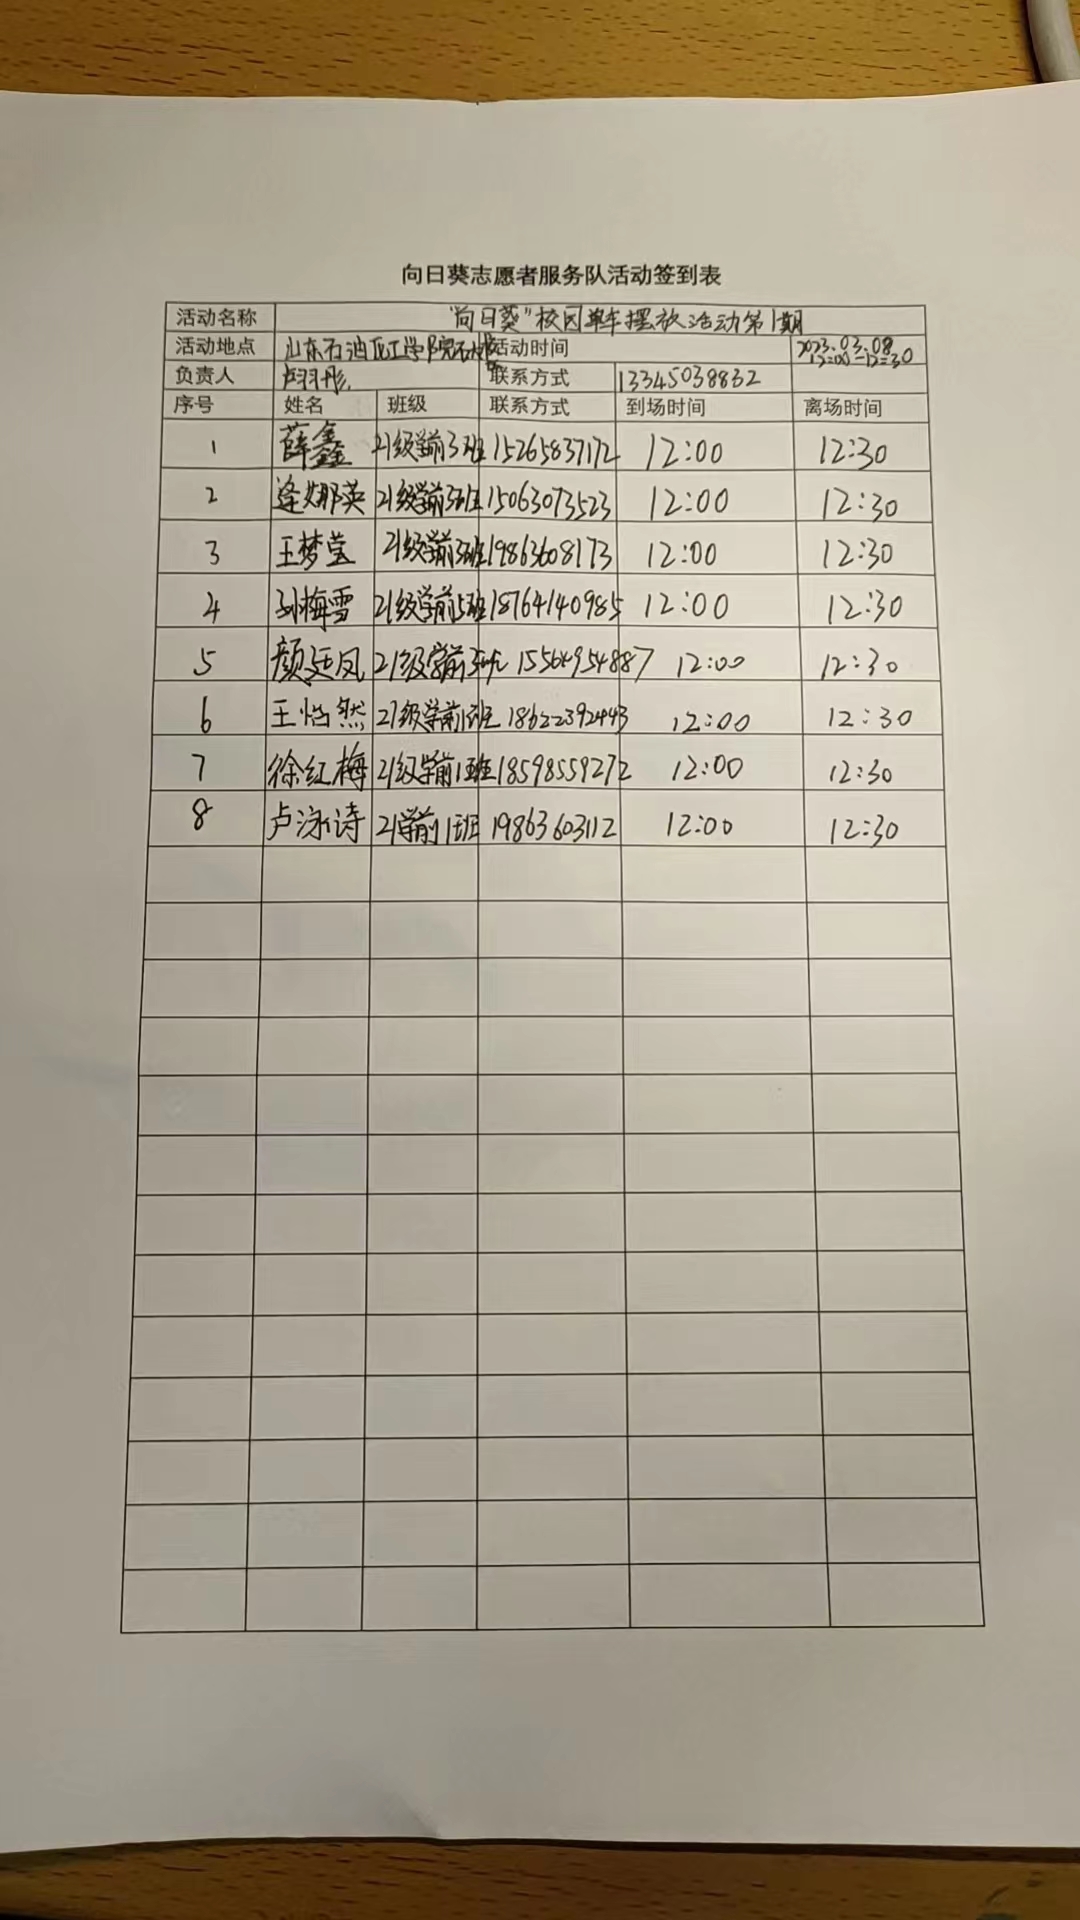 向日葵志愿者服务队活动签到表
活动名称 "向日葵"校园单车摆放活动第1期
活动地点 山东石油化工学院 活动时间 2023.03.08 12:00-12:30
负责人 卢羽彤 联系方式 13345038832
序号 姓名 班级 联系方式 到场时间 离场时间
1 薛鑫 21级学前3班 15265837172 12:00 12:30
2 逄娜英 21级学前3班 15063073523 12:00 12:30
3 王梦莹 21级学前3班 19863608173 12:00 12:30
4 孙梅雪 21级学前5班 18764140985 12:00 12:30
5 颜廷凤 21级学前3班 15564954887 12:00 12:30
6 王怡然 21级学前1班 18622392443 12:00 12:30
7 徐红梅 21级学前1班 18598559272 12:00 12:30
8 卢泳诗 21学前1班 19863603112 12:00 12:30